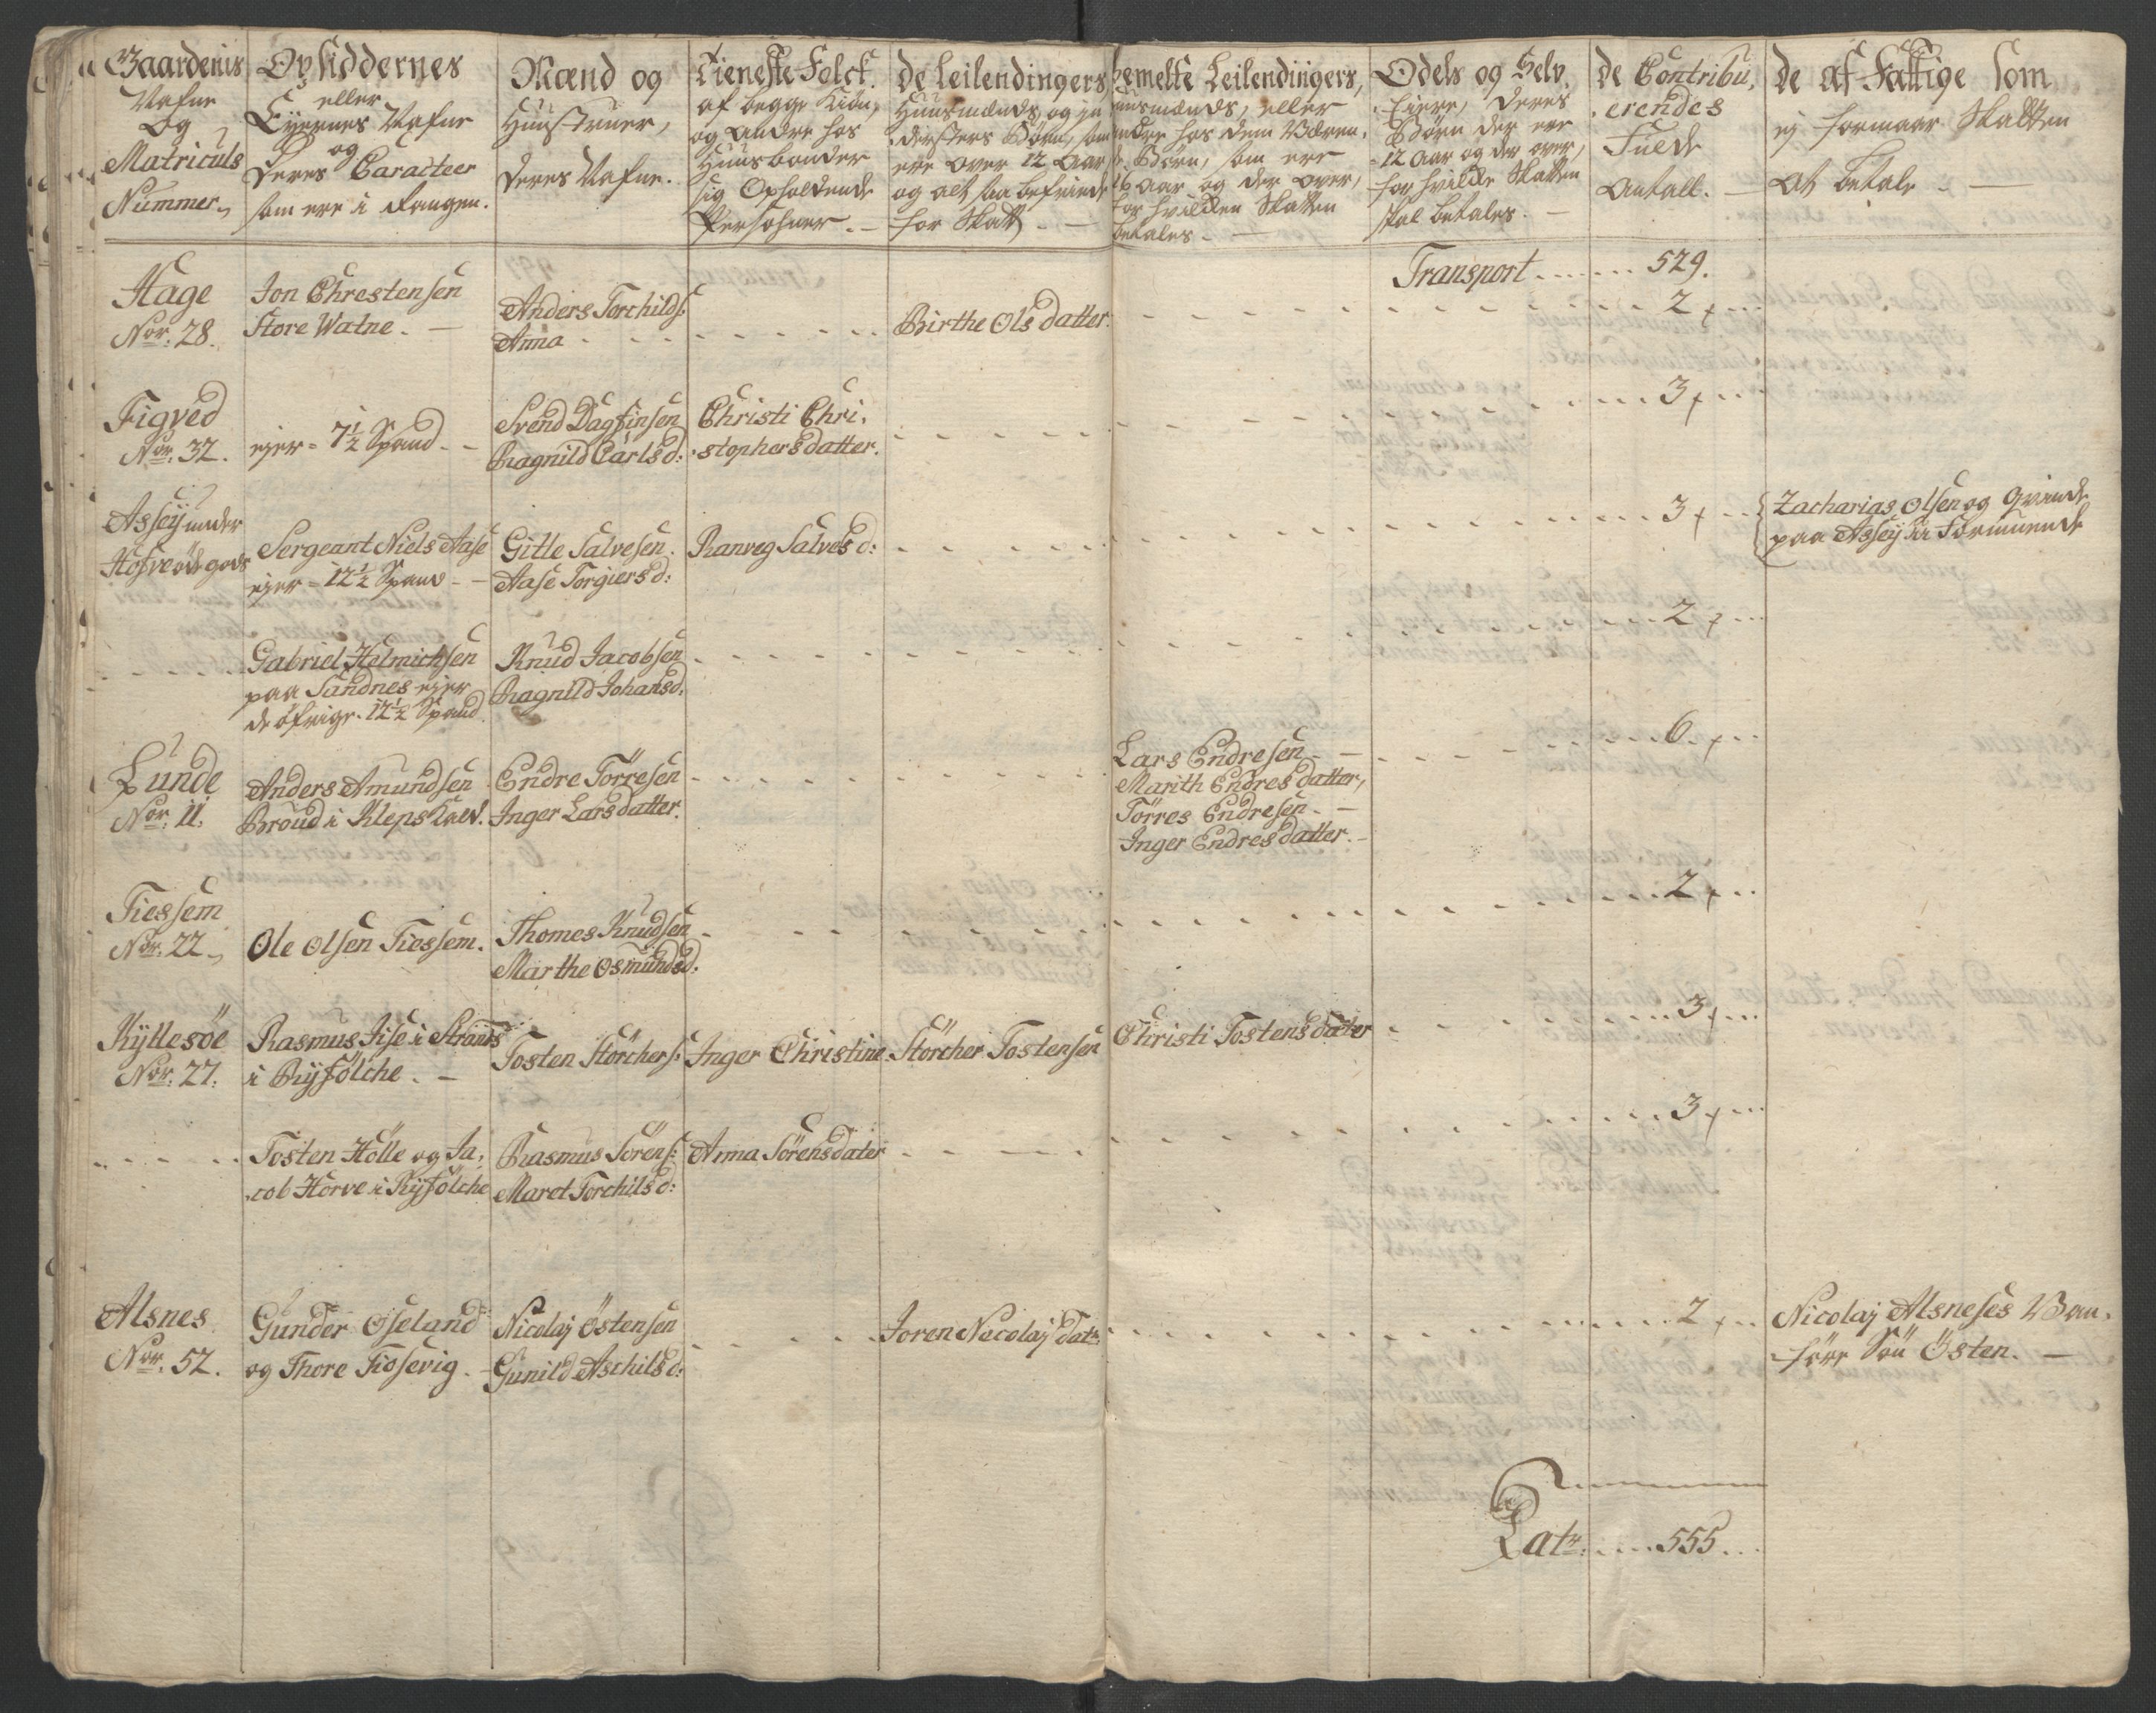 Gaardenis
Nafne
Og
Matriculs
Nummer
Opsiddernes
eller
Eyernes Nafne
og
deres Caracteer
som ere i Rangen.
Mænd og
Huustruer,
deres Nafne.
Tieneste Folck.
af begge Kiøn,
og andre hos
Huusbonder
sig Opholdende
Persohner. -
De Leilendingers
Huusmænds, og In-
dersters Børn, som
ere over 12 Aar
og alt saa befriende
for Skatt. -
bemelte Leilendingers,
Huusmænds, eller
andre hos dem Væren-
de Børn, som ere
16 Aar og der over,
for hvilcken Skatten
betales. -
Odels og Selv
Eiere, deres
Børn der ere
12 Aar og der over,
for hvilcke Skatten
skal betales. -
de Contribu-
erendes
Fulde
Antall. -
de af Fattige som
ej formaar Skatten
at betale. -
Transport ...... 529.
Hage
Nor. 28.
Jon Chrestensen
Store Watne. -
Anders Torchilds:
Anna
Birthe Ols datter.
2
Figved
Nor. 32.
ejer = 7½ Spand. -
Svend Dagfinsen
Ragnild Carlsd:
Christi Chri-
stophersdatter.
3
Assey under
Hofveødegods
Sergeant Niels Aase
ejer = 12½ Spand - -
Gitle Salvesen.
Aase Torgiersd:
Ranveg Salvesd:
3
Zacharias Olsen og Qvinde
paa Assey
Gabriel Helmichsen
paa Sandnes ejer
de øfrige. 12½ Spand
Knud Jacobsen
Ragnild Johansd:
2
Lunde
Nor. 11.
Anders Amundsen
Broud i Klepskaed.
Endre Törresen
Inger Larsdatter.
Lars Endresen. -
Marith Endresdatter,
Törres Endresen. -
Inger Endresdatter. -
6
Tiessem
Nor. 22.
Ole Olsen Tiossem.
Thomes Knudsen
Marthe Osmundsd:
2
Kyllesöe
Nor. 27.
Rasmus Fise i Strands
i Ryfölche. -
Tosten Störchers:
Inger Christine
Störcher Tostensen
Christi Tostensdatter
3
Tosten Hölle og Ja-
cob Horve i Ryfölche
Rasmus Sörens:
Maret Torchilsd:
Anna Sörensdater
3
Alsnes
Nor. 52.
Gunder Oseland
og Thore Tiosevig. -
Nicolaj Östensen
Gunild Aschilsd:
Joren Necolaj dat:
2
Nicolaj Alsneses Van-
före Sön Östen. -
Latr: .... 555